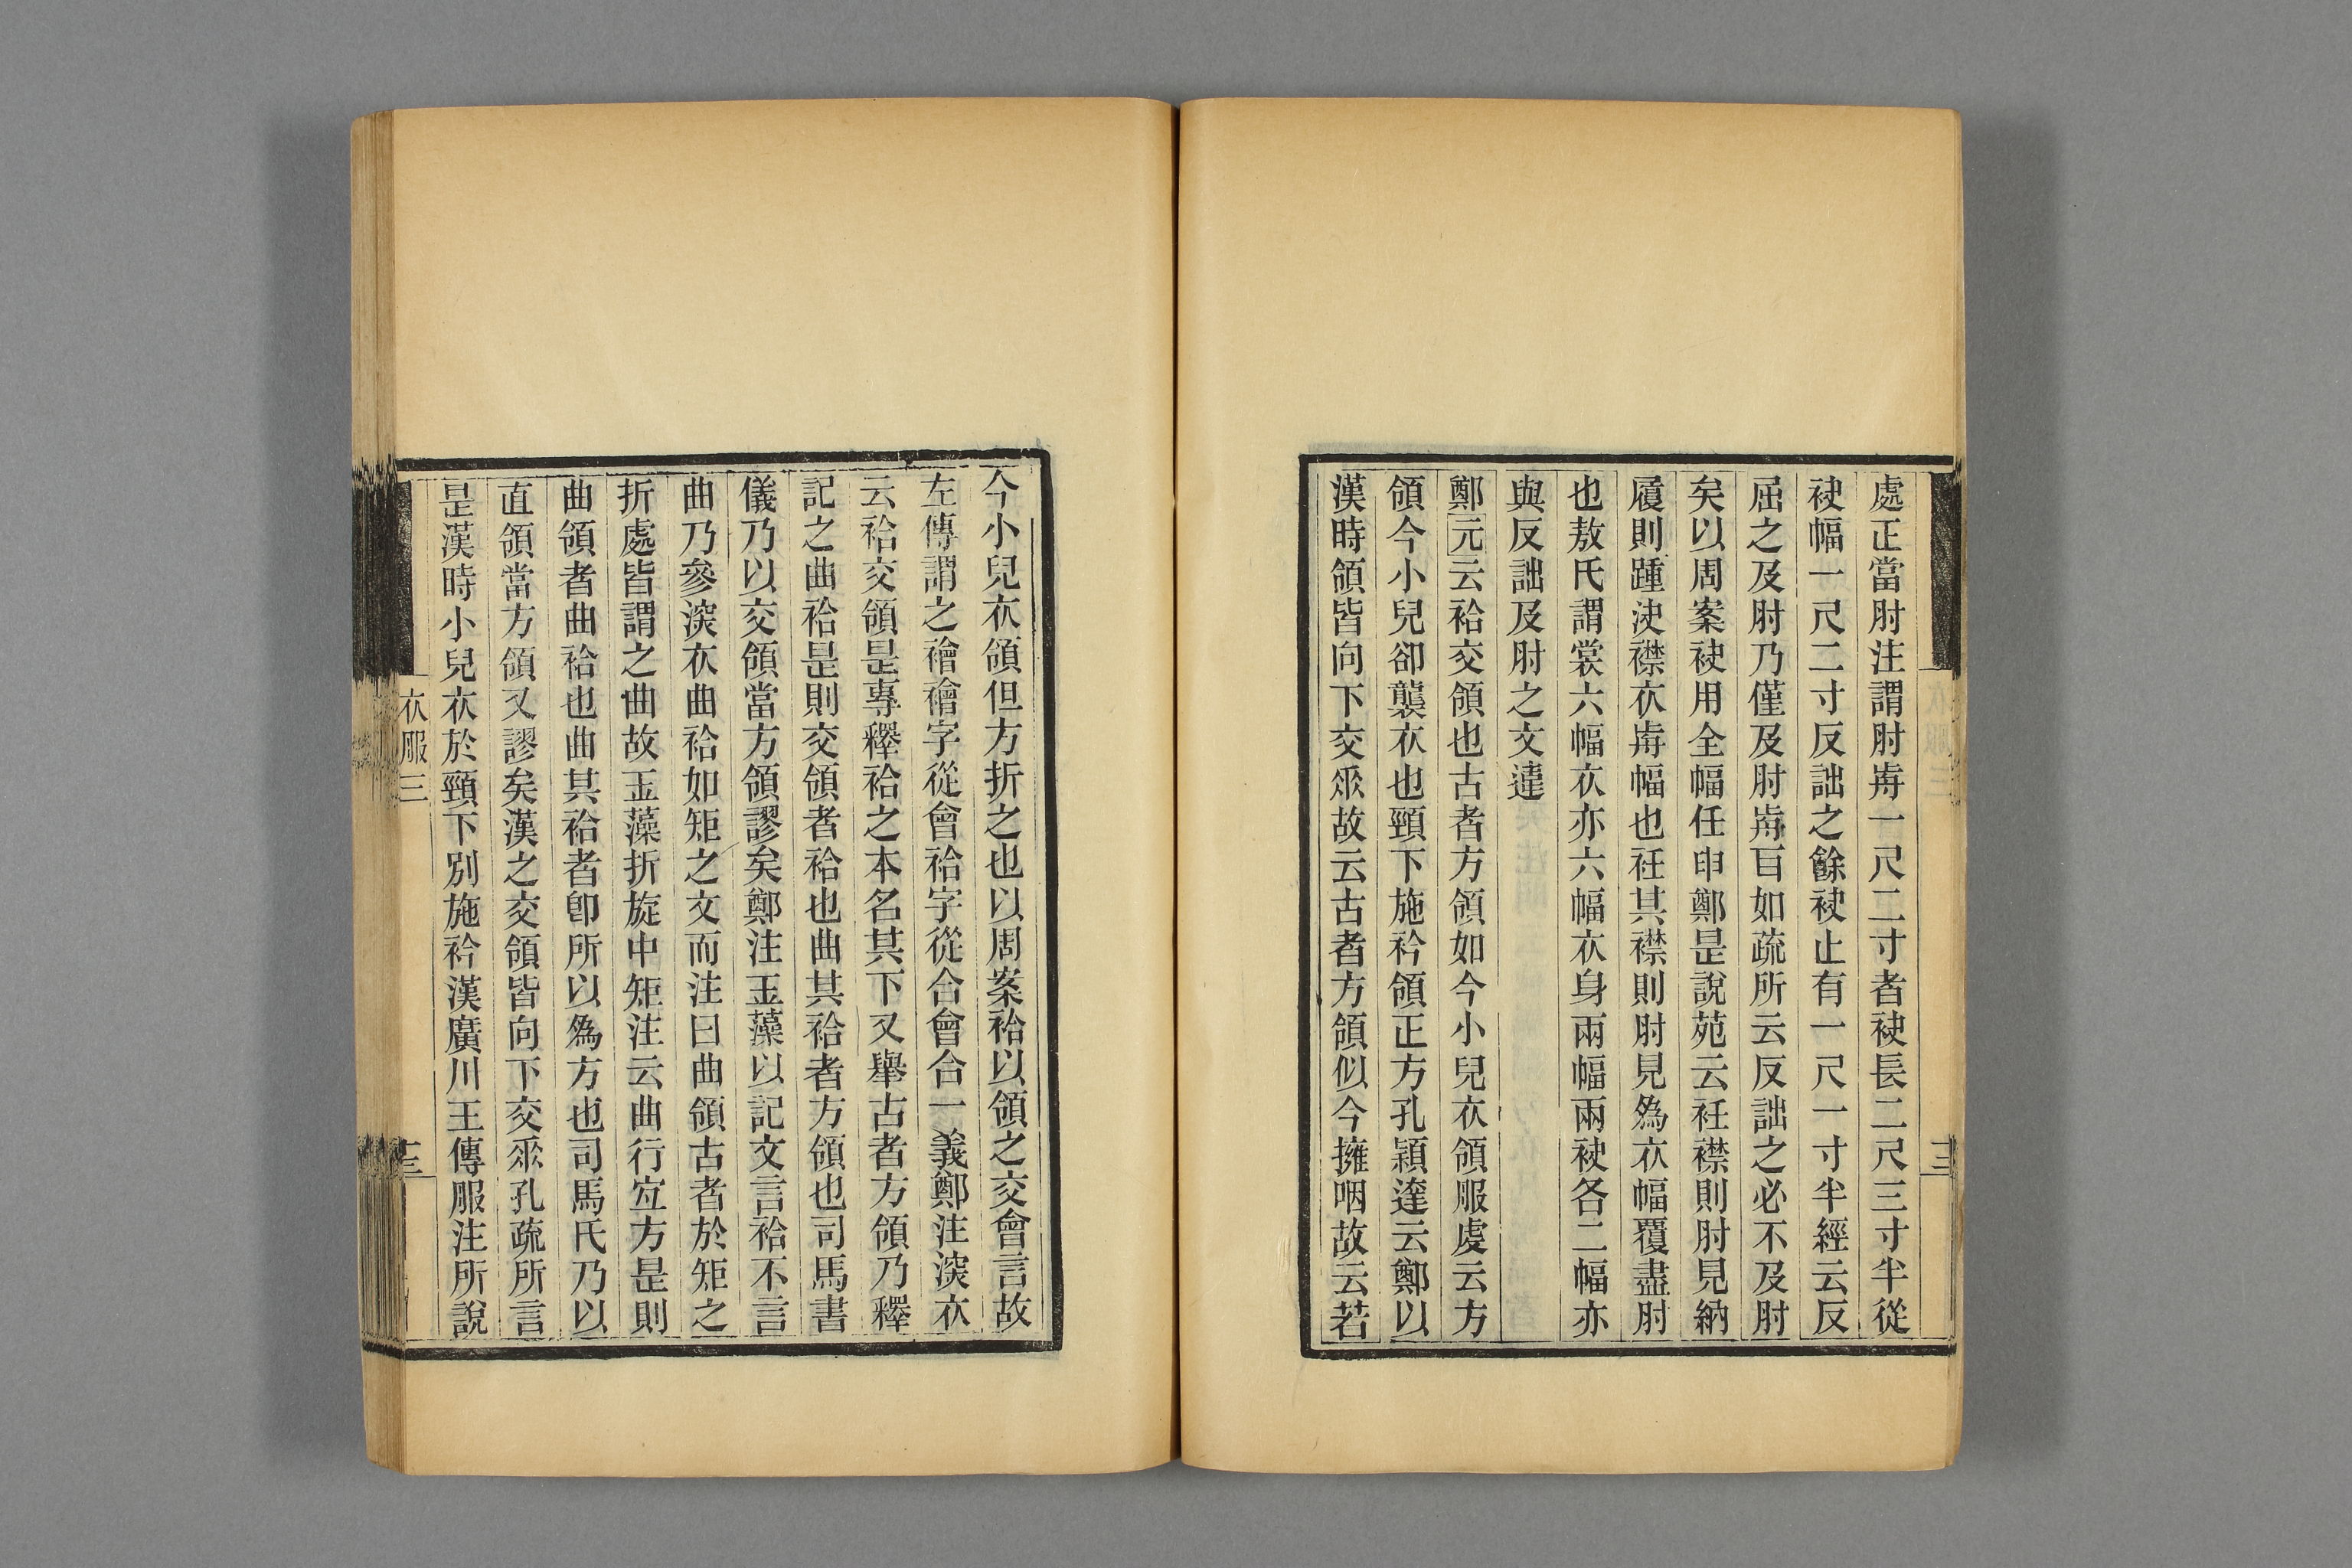 處正當肘注謂肘歬一尺二寸者袂長二尺三寸半從
袂幅一尺二寸反詘之餘袂止有一尺一寸半經云反
屈之及肘乃僅及肘歬百如疏所云反詘之必不及肘
矣以周案袂用全幅任申鄭是說苑云衽襟則肘見納
履則踵決襟衣歬幅也衽其襟則肘見為衣幅覆盡肘
也敖氏謂裳六幅衣亦六幅衣身兩幅兩袂各二幅亦
與反詘及肘之文違
鄭元云袷交領也古者方領如今小兒衣領服虔云方
領今小兒卻襲衣也頸下施衿領正方孔穎達云鄭以
漢時領皆向下交𠂹故云古者方領似今擁咽故云若
今小兒衣領但方折之也以周案袷以領之交會言故
左傳謂之襘襘字從會袷字從合會合一義鄭注深衣
云袷交領是專釋袷之本名其下又舉古者方領乃釋
記之曲袷是則交領者袷也曲其袷者方領也司馬書
儀乃以交領當方領謬矣鄭注玉藻以記文言袷不言
曲乃參深衣曲袷如矩之文而注曰曲領古者於矩之
折處皆謂之曲故玉藻折旋中矩注云曲行宜方是則
曲領者曲袷也曲其袷者卽所以為方也司馬氏乃以
直領當方領又謬矣漢之交領皆向下交𠂹孔疏所言
是漢時小兒衣於頸下別施衿漢廣川王傳服注所說
衣服三
十三